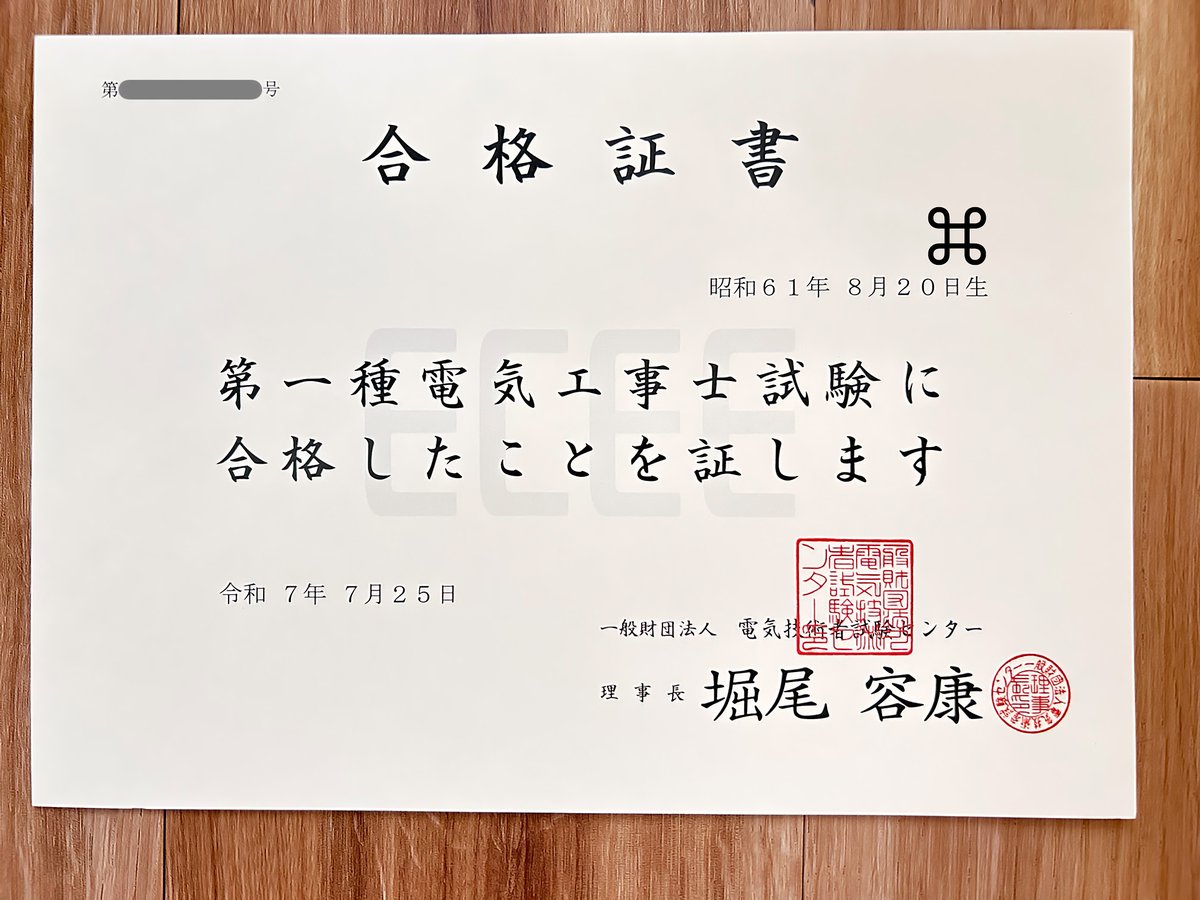 第 号
合格証書
⌘
昭和６１年 ８月２０日生
ECEE
第一種電気工事士試験に
合格したことを証します
令和 ７年 ７月２５日
一般財団法人 電気技術者試験センター
理事長 堀尾 容康